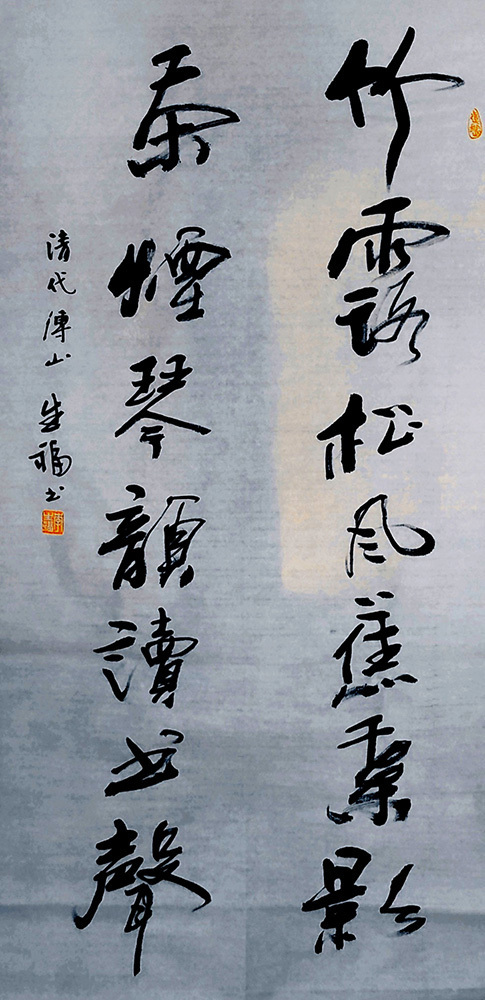 竹露松风蕉叶影
茶煙琴韻讀书聲
清代傅山 生福书